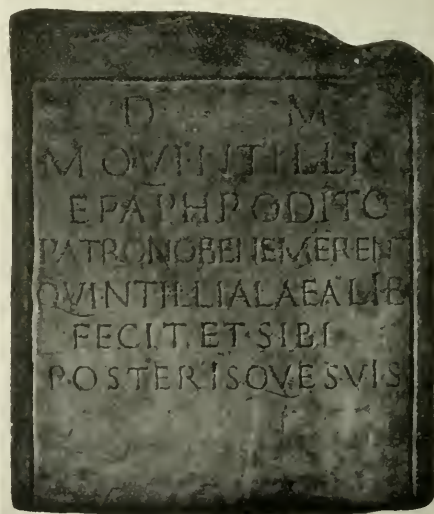 D M
M·QVINTILLIO
EPAPHRODITO
PATRONO·BENEMERENT
QVINTILLIA LAEA LIB
FECIT·ET·SIBI
POSTERISQVE SVIS